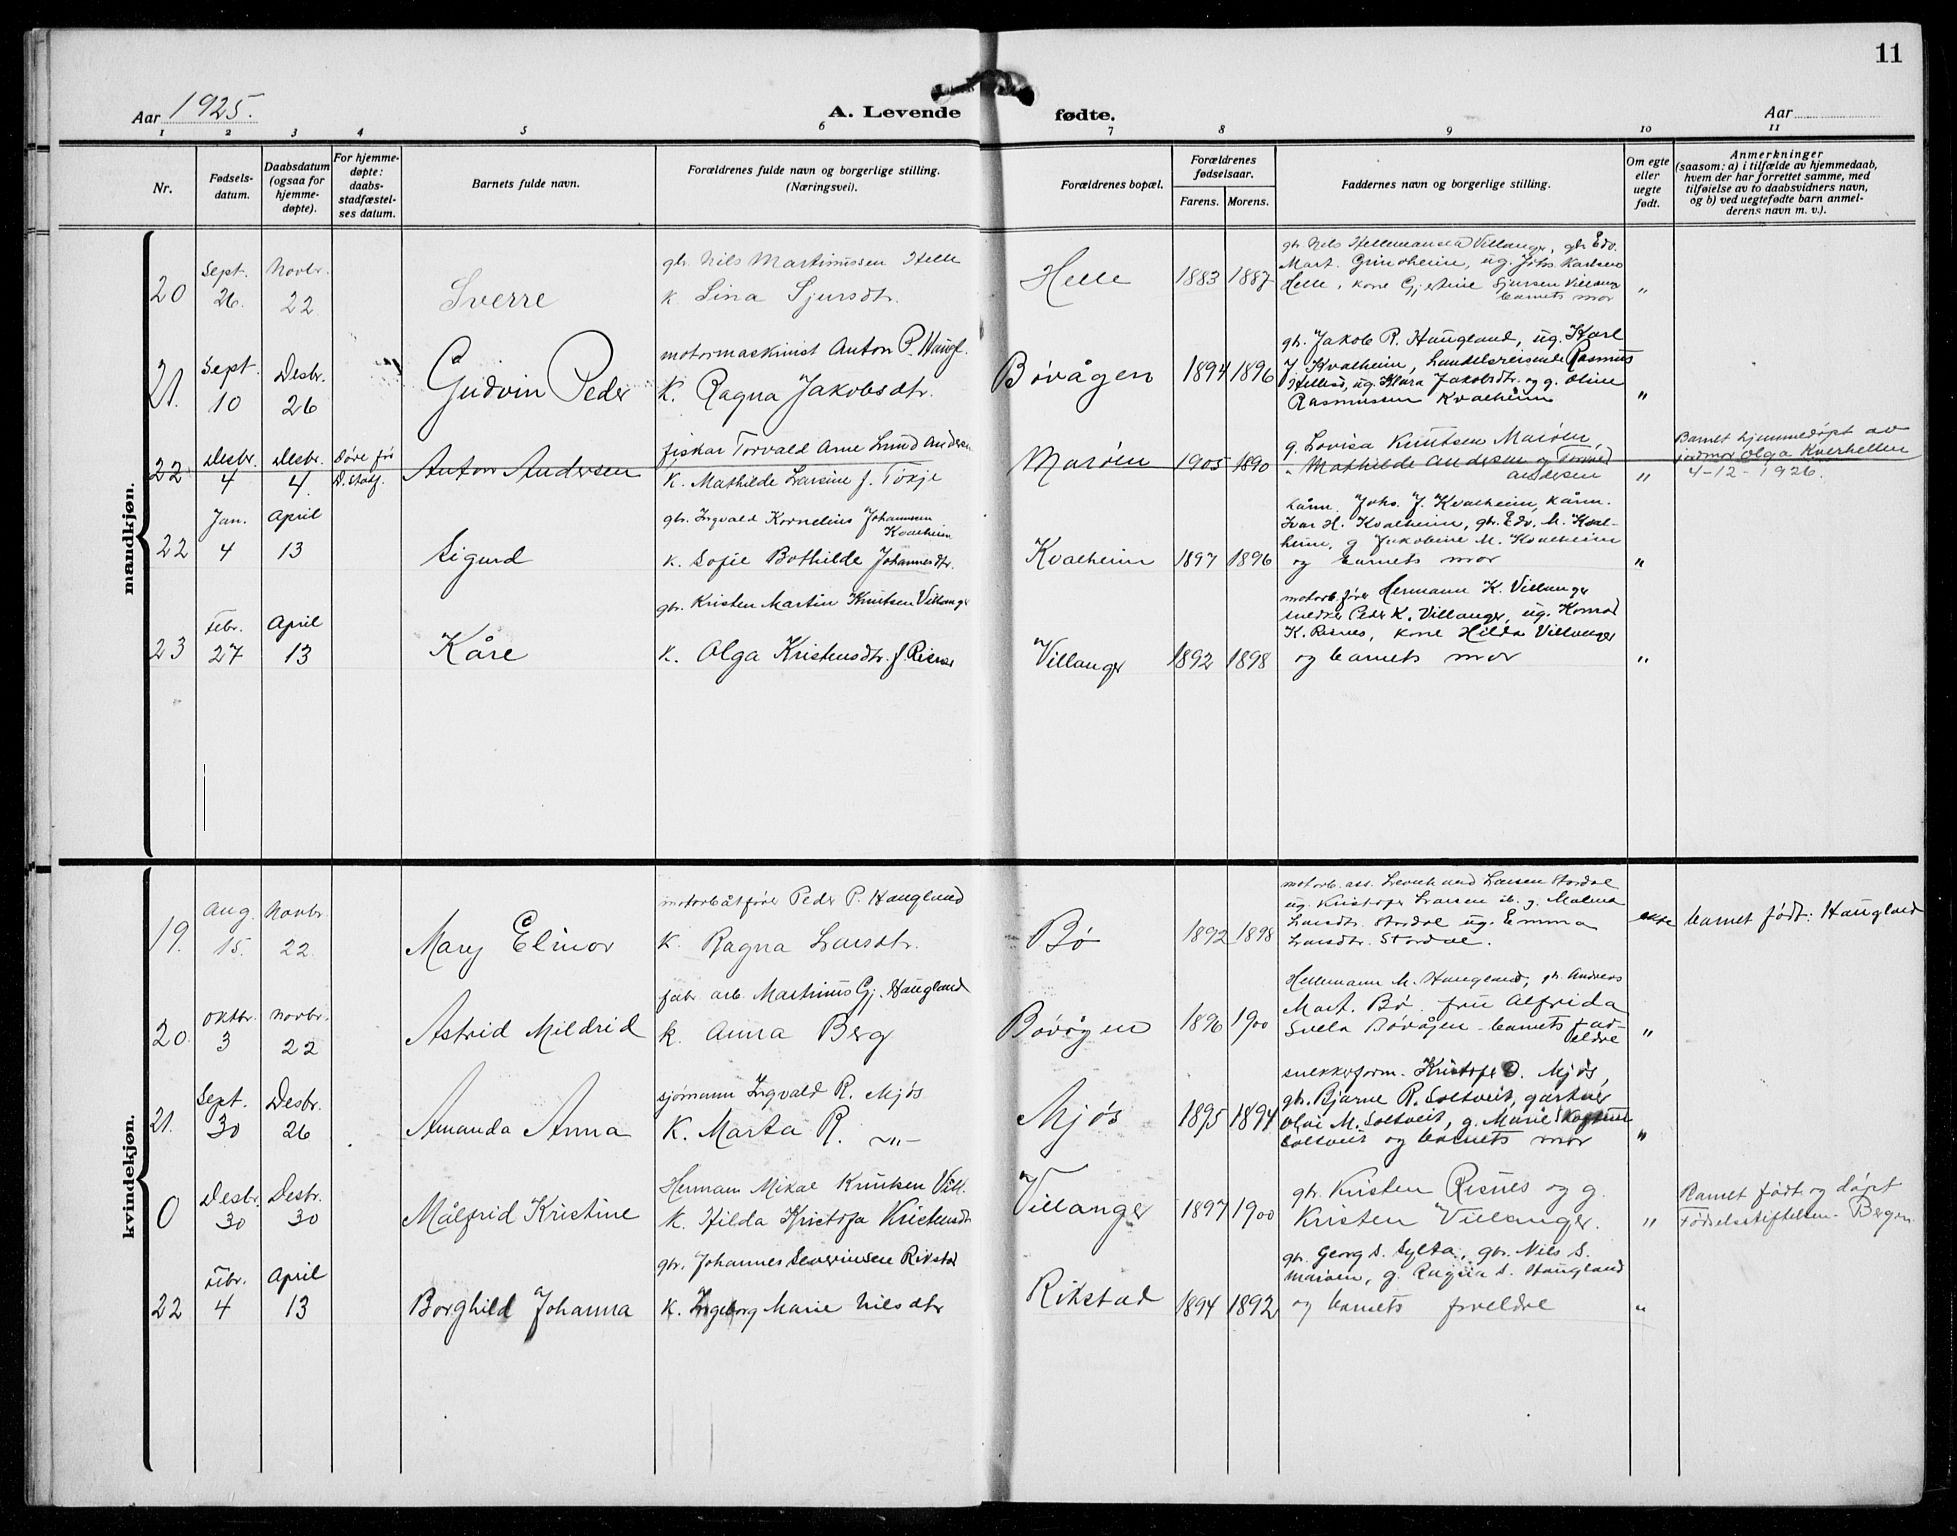 11
Aar 1925.
A. Levende fødte.
Aar
1 2 3 4 5 6 7 8 9 10 11
Nr.
Fødsels-
datum.
Daabsdatum
(ogsaa for
hjemme-
døpte).
For hjemme-
døpte:
daabs-
stadfæstel-
ses datum.
Barnets fulde navn.
Forældrenes fulde navn og borgerlige stilling.
(Næringsvei).
Forældrenes bopæl.
Forældrenes
fødselsaar.
Farens. Morens.
Faddernes navn og borgerlige stilling.
Om egte
eller
uegte
født.
Anmerkninger
(saasom: a) i tilfælde av hjemmedaab,
hvem der har forrettet samme, med
tilføielse av to daabsvidners navn,
og b) ved uegtefødte barn anmel-
derens navn m. v.).
mandkjøn.
20
Sept.
26.
Novbr.
22
Sverre
gbr. Nils Martinussen Helle
k. Lina Sjursdtr.
Helle
1883 1887
gbr. Nils Hellemansen Villanger, gbr. Edv.
Mart. Grindheim, ug. Johs. Karlsen
Helle, kone Gjertine Sjursen Villanger
barnets mor
"
21.
Sept.
10
Desbr.
26
Gudvin Peder
motormaskinist Anton P. Haugl.
K. Ragna Jakobsdtr.
Bøvågen
1894 1896
gbr. Jakob R. Haugland, ug. Karl
J. Kvalheim, handelsreisende Rasmus
Hellesø, ug. Klara Jakobsdtr. og g. Oline
Rasmussen Kvalheim
"
22
Desbr.
4
Desbr.
4.
Døde før
D. stadf.
Anton Andersen
fiskar Torvald Arne Lund Andersen
K. Mathilde Larsine f. Toxje
Marøen
1905 1890
g. Lovisa Knutsen Marøen,
" Mathilde Andersen og Torvald
Andersen
"
Barnet hjemmedøpt av
jordmor Olga Kverhellen
4-12-1926.
22
Jan.
4
April
13
Sigurd
gbr. Ingvald Kornelius Johannesen
Kvalheim
k. Sofie Bothilde Johannesdtr.
Kvalheim
1897 1896
kårm. Johs. J. Kvalheim, kårm.
Ivar H. Kvalheim, gbr. Edv. M. Kval-
heim, g Jakobine M. Kvalheim
og barnets mor
"
23
Febr.
27
April
13
Kåre
gbr. Kristen Martin Knutsen Villanger
k. Olga Kristensdtr. f. Risnes
Villanger
1892 1898
motorb.fører Hermann K. Villanger
snedker Peder K. Villanger, ug. Konrad
K. Risnes, kone Hilda Villanger
og barnets mor
"
kvindekjøn.
19.
Aug.
15.
Novbr.
22.
Mary Elinor
motorbåtfører Peder P. Haugland
K. Ragna Larsdtr.
Bø
1892 1898
motorb. ass. Levinhard Larsen Stordal
ug. Kristofer Larsen ib. g. Malena
Larsdtr. Stordal ug. Emma
Larsdtr. Stordal.
ekte
barnet født: Haugland
20.
Oktbr.
3
Novbr.
22
Astrid Mildrid
fabr. arb. Martinus Gj. Haugland
k. Anna Berg
Bøvågen
1896 1900
Hellemann M. Haugland, gbr. Andreas
Mart. Bø. fru Alfrida
Svela Bøvågen. barnets for-
eldre
"
21.
Sept.
30
Desbr.
26
Amanda Anna
sjømann Ingvald R. Mjøs
K. Marta R. —"—
Mjøs
1895 1894
snekkerform. Kristofer O. Mjøs,
gbr. Bjarne R. Soltveit, gartner
Olai M. Soltveit, g. Marie
Soltveit og barnets mor
"
0
Desbr.
30
Desbr.
30
Målfrid Kristine
Hermann Mikal Knutsen Vill.
K. Hilda Kristofa Kristensdtr
Villanger
1897 1900
gbr. Kristen Risnes og g.
Kristen Villanger.
"
Barnet født og døpt
Fødselsstiftelsen. Bergen.
22
Febr.
4
April
13
Borghild Johanna
gbr. Johannes Severinsen Rikstad
K. Ingeborg Marie Nilsdtr
Rikstad
1894 1892
gbr. Georg S. Sylta, gbr. Nils S.
Marøen, g. Ragna S. Haugland
og barnets foreldre
"